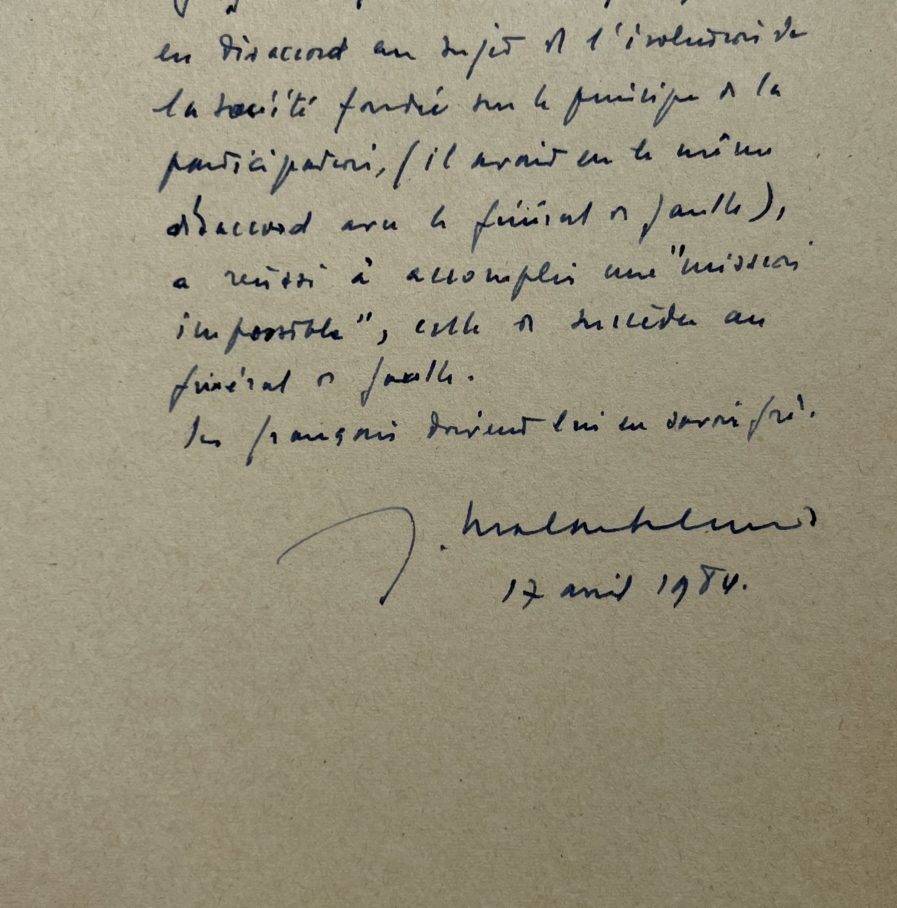 en désaccord au sujet de l'évolution de
la société fondée sur le principe de la
participation, (il avait eu le même
désaccord avec le général de Gaulle),
a réussi à accomplir une "mission
impossible", celle de succéder au
général de Gaulle.
Les français doivent lui en savoir gré.
J.
17 avril 1984.